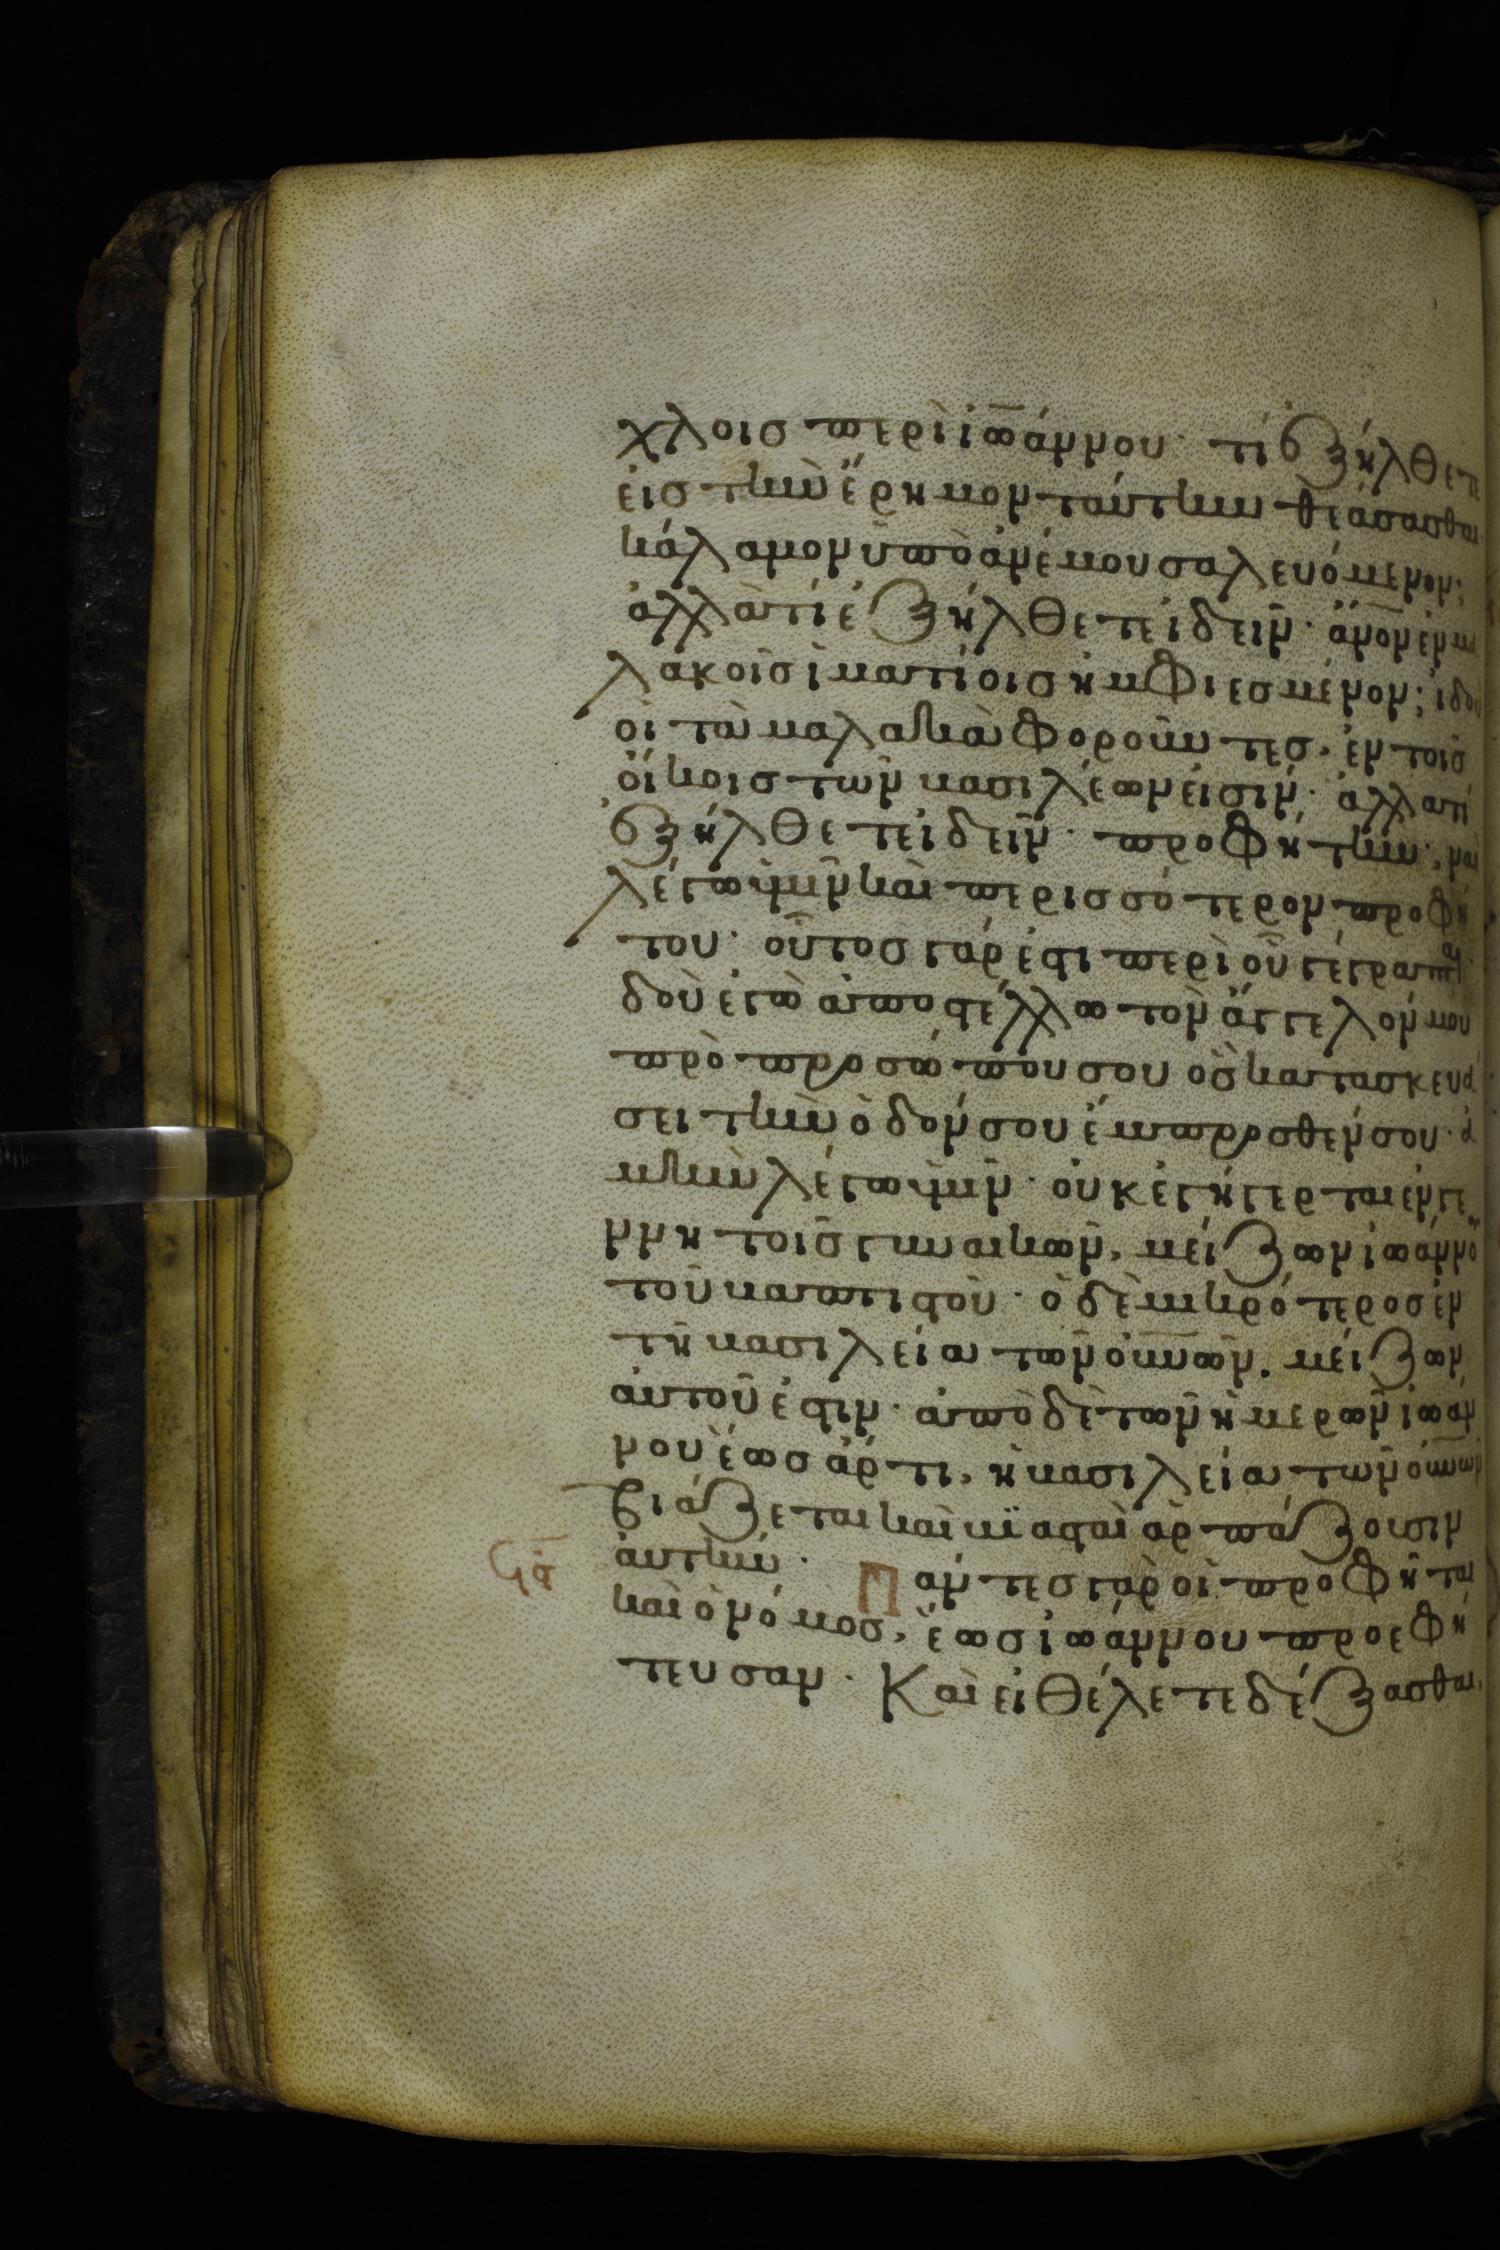 χλοισ περὶ ἰωάννου· τί ἐξήλθετε
εἰσ τὴν ἔρημον ταύτην θεάσασθαι
κάλαμον ὑπὸ ἀνέμου σαλευόμενον;
ἀλλὰ τί ἐξήλθετε ἰδεῖν· ἄνον ἐν μα
λακοῖσ ἱματίοισ ἠμφιεσμένον; ἰδοὺ
οἱ τὰ μαλακὰ φοροῦντεσ· ἐν τοῖσ
οἴκοισ τῶν βασιλέων εἰσίν· ἀλλὰ τί
ἐξήλθετε ἰδεῖν· προφήτην· ναὶ
λέγω ὑμῖν καὶ περισσότερον προφή
του· οὗτοσ γάρ ἐστι περὶ οὗ γέγραπται
ἰδοὺ ἐγὼ ἀποστέλλω τὸν ἄγγελόν μου
πρὸ προσώπου σου ὃσ κατασκευά
σει τὴν ὁδόν σου ἔμπροσθέν σου· ἀ
μὴν λέγω ὑμῖν· οὐκ ἐγήγερται ἐν γε
ννητοῖσ γυναικῶν, μείζων ἰωάννου
τοῦ βαπτιστοῦ· ὁ δὲ μικρότεροσ ἐν
τῆ βασιλεία τῶν οὐνῶν, μείζων
αὐτοῦ ἐστιν· ἀπὸ δὲ τῶν ἡμερῶν ἰωάν
νου ἕωσ ἄρτι, ἡ βασιλεία τῶν οὐνῶν
βιάζεται καὶ βϊασταὶ ἁρπάζουσιν
αὐτήν· Πάντεσ γὰρ οἱ προφῆται
καὶ ὁ νόμοσ, ἕωσ ἰωάννου προεφή
τευσαν· Καὶ εἰ θέλετε δέξασθαι,